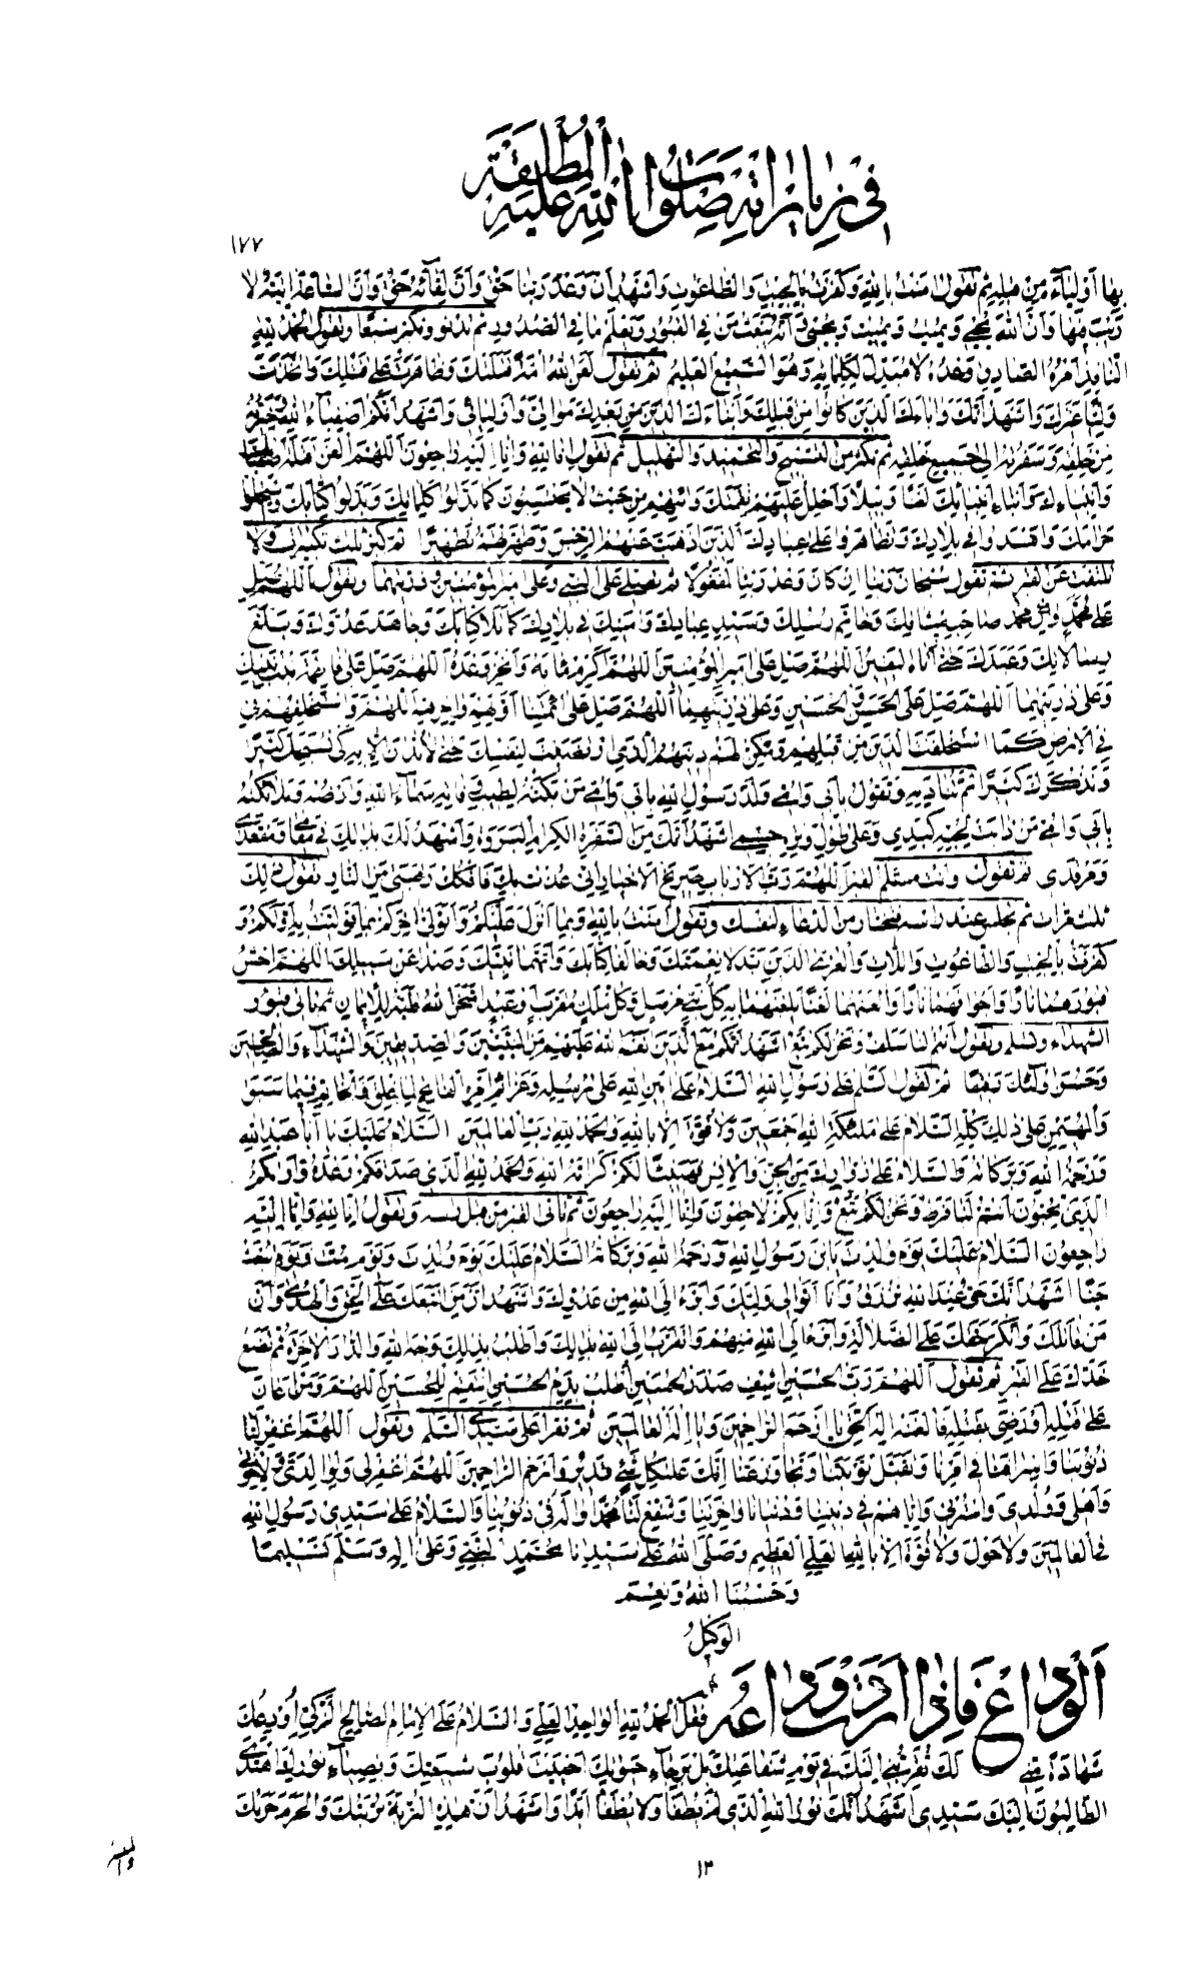 في زياراته صلوات الله عليه المطلقة
١٧٧
بها أولياء من قبله ثم تقول آمنت بالله وكفرت بالجبت والطاغوت وأشهد أن وعد ربنا حق وأن لقائه حق وأن الساعة آتية لا
ريب فيها وأن الله يحيي ويميت ويميت ويحيي وأنه يبعث من في القبور ويعلم ما في الصدور ثم تدنو وتكبر سبعا وتقول الحمد لله
النافذ أمره الصادق وعده لا مبدل لكلماته وهو السميع العليم ثم تقول لعن الله أمة قتلتك وظاهرت على قتلك واتخذت
وأشهد أنك وآباءك الذين كانوا من قبلك وأبناءك الذين من بعدك موالي وأوليائي وأشهد أنكم أصفياء الله
من خلقه وسفرته إلى جميع خلقه ثم تكثر من التسبيح والتحميد والتهليل ثم تقول إنا لله وإنا إليه راجعون اللهم العن
وأبناء أنبيائك لعنا وبيلا وأحلل عليهم نقمتك وائتهم من حيث لا يحتسبون كما بدلوا كلماتك وبدلوا كتابك واستحلوا
حرامك وأفسدوا في بلادك وتظاهروا على عبادك الذين أذهبت عنهم الرجس وطهرتهم تطهيرا ثم كبر ثلث تكبيرات ولا
تلتفت عن القبر ثم تقول سبحان ربنا إن كان وعد ربنا لمفعولا ثم تصلي على النبي وعلى أمير المؤمنين وذريتهما وتقول اللهم صل
على محمد وآل محمد صاحب ميثاقك وخاتم رسلك وسيد عبادك وأمينك في بلادك كما تلا كتابك وجاهد عدوك وبلغ
رسالاتك وعبدك حتى أتاه اليقين اللهم صل على أمير المؤمنين اللهم أكرم مثابه وأنجز وعده اللهم صل على فاطمة بنت نبيك
وعلى ذريتهما اللهم صل على الحسن والحسين وعلى ذريتهما اللهم صل على أئمتنا أولهم وآخرهم اللهم واستخلفهم في
في الأرض كما استخلفت الذين من قبلهم ومكن لهم دينهم الذي ارتضيت لنفسك حتى لا ندين إلا به كي نسبحك كثيرا
ونذكرك كثيرا ثم تناديه وتقول بأبي وأمي ولد رسول الله بأبي وأمي من سماء الله وأرضه وملائكته
بأبي وأمي من ذابت لحبه كبدي وعلى طول جسمي أشهد أنك من السفرة الكرام البررة وأشهد لك بذلك في مقامي ومقعدي
ومرقدي ثم تقول وأنت مستلم القبر اللهم رب الأرباب صريخ الأخيار إني عذت بك ففكني رقبتي من النار وتقول ذلك
ثلث مرات ثم تجلس عند رأسه فتختار من الدعاء لنفسك وتقول آمنت بالله وبما أنزل عليكم وأتولى آخركم بما توليت به أولكم و
كفرت بالجبت والطاغوت واللات والعزى الذين بدلا نعمتك وخالفا كتابك واتهما نبيك وصدا عن سبيلك اللهم احش
قبورهما نارا وأجوافهما نارا والعنهما لعنا يلعنهما به كل نبي مرسل وكل ملك مقرب وعبد امتحن الله قلبه للإيمان ثم تأتي قبور
الشهداء وتسلم وتقول أنتم لنا سلف ونحن لكم تبع أشهد أنكم مع الذين أنعم الله عليهم من النبيين والصديقين والشهداء والصالحين
وحسن أولئك رفيقا ثم تقول السلام على رسول الله السلام على أمين الله على رسله وعزائم أمره الفاتح لما غلق والخاتم فيما سبق
والمهيمن على ذلك كله السلام على ملئكة الله أجمعين ولا قوة إلا بالله والحمد لله رب العالمين السلام عليك يا أبا عبد الله
ورحمة الله وبركاته والسلام على زوارك من الجن والإنس فهنيئا لكم كرامة الله والحمد لله الذي صدقكم وعده وأراكم
الذي تحبون أنتم لنا فرط ونحن لكم تبع وإنا بكم لاحقون وإنا إليه راجعون ثم تأتي القبر من قبل رأسه وتقول إنا لله وإنا إليه
راجعون السلام عليك يوم ولدت يا ابن رسول الله ورحمة الله وبركاته السلام عليك يوم ولدت ويوم مت ويوم تبعث
حيا أشهد أنك حي عند الله ترزق وأنا أتوالى وليك وأبرء إلى الله من عدوك وتشهد أن من اتبعك على الحق والهدى وأن
من قاتلك وأنكر حقك على الضلالة وأبرء إلى الله منهم وأتقرب إلى الله بذلك وأطلب بذلك وجه الله والدار الآخرة ثم تضع
خدك على القبر ثم تقول اللهم رب الحسين اشف صدر الحسين اطلب بدم الحسين انتقم للحسين اللهم ومن أعان
على قتله ورضي بقتله فالعنه إله الحق يا أرحم الراحمين ويا إله العالمين ثم تقرء على سيدي السلم وتقول اللهم اغفر لنا
ذنوبنا وإسرافنا في أمرنا وتقبل توبتنا وتجاوز عنا إنك على كل شيء قدير وأرحم الراحمين اللهم اغفر لي ولوالدي ولإخواني
وأهلي وولدي وأشركني وإياهم في ديننا ودنيانا وآخرتنا وشفع لنا محمدا وآله في ذنوبنا والسلام على سيدي رسول الله
في العالمين ولا حول ولا قوة إلا بالله العلي العظيم وصلى الله على سيدنا محمد النبي وعلى آله وسلم تسليما
وحسبنا الله ونعم
الوكيل
الوداع فإذا أردت وداعه فقل الحمد لله الواحد العلي والسلام على الإمام الصالح الزكي أودعك
شهادة مني لك تقربني إليك في يوم شفاعتك بل برجاء حيوتك أحييت قلوب شيعتك وبضياء نورك اهتدى
الطالبون إليك سيدي أشهد أنك نور الله الذي لم يطفأ ولا يطفأ أبدا وأشهد أن هذه التربة تربتك والحرم حرمك
١٣